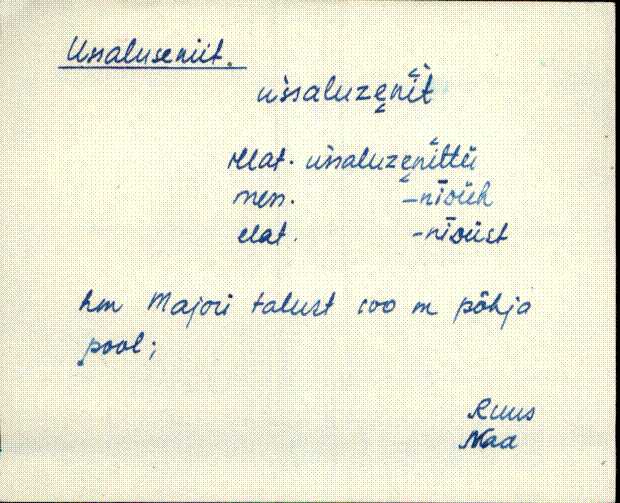 Ussaluseniit.
u̓ssaluzęni̬t
illat. u̓ssaluzęnittü
iness. -nīdüh
elat. -nīdüst
hm Majori talust 100 m põhja
pool;
Ruus
Naa